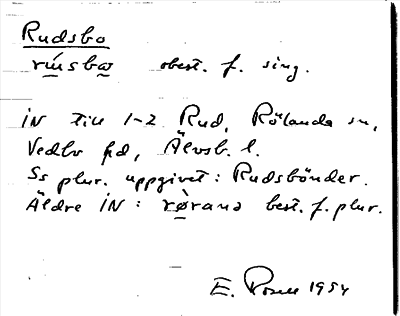 Rudsbo
rú̱sba̱ obest. f. sing.
iN till 1-2 Rud, Rölanda sn,
Vedbo hd, Älvsb. l.
Ss plur. uppgivet: Rudsbönder.
Äldre iN: rø̱̀rana best. f. plur.
E. Rosell 1954